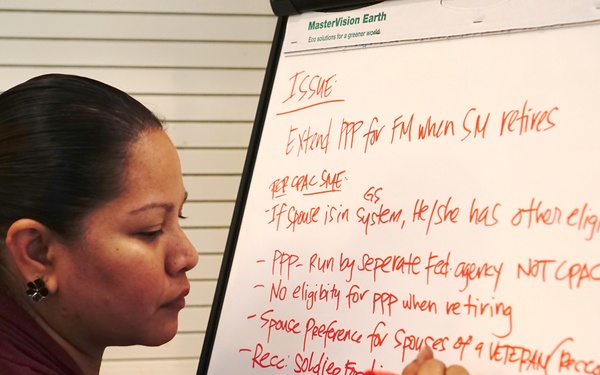 MasterVision Earth
Eco solutions for a greener world
ISSUE:
Extend PPP for FM when SM retires
PER CPAC SME:
GS
- If spouse is in system, He/she has other eligi
- PPP - Run by seperate Fed. agency NOT CPAC
- No eligibity for PPP when retiring
- Spouse Preference for Spouses of a VETERAN/
- Recc: Soldier